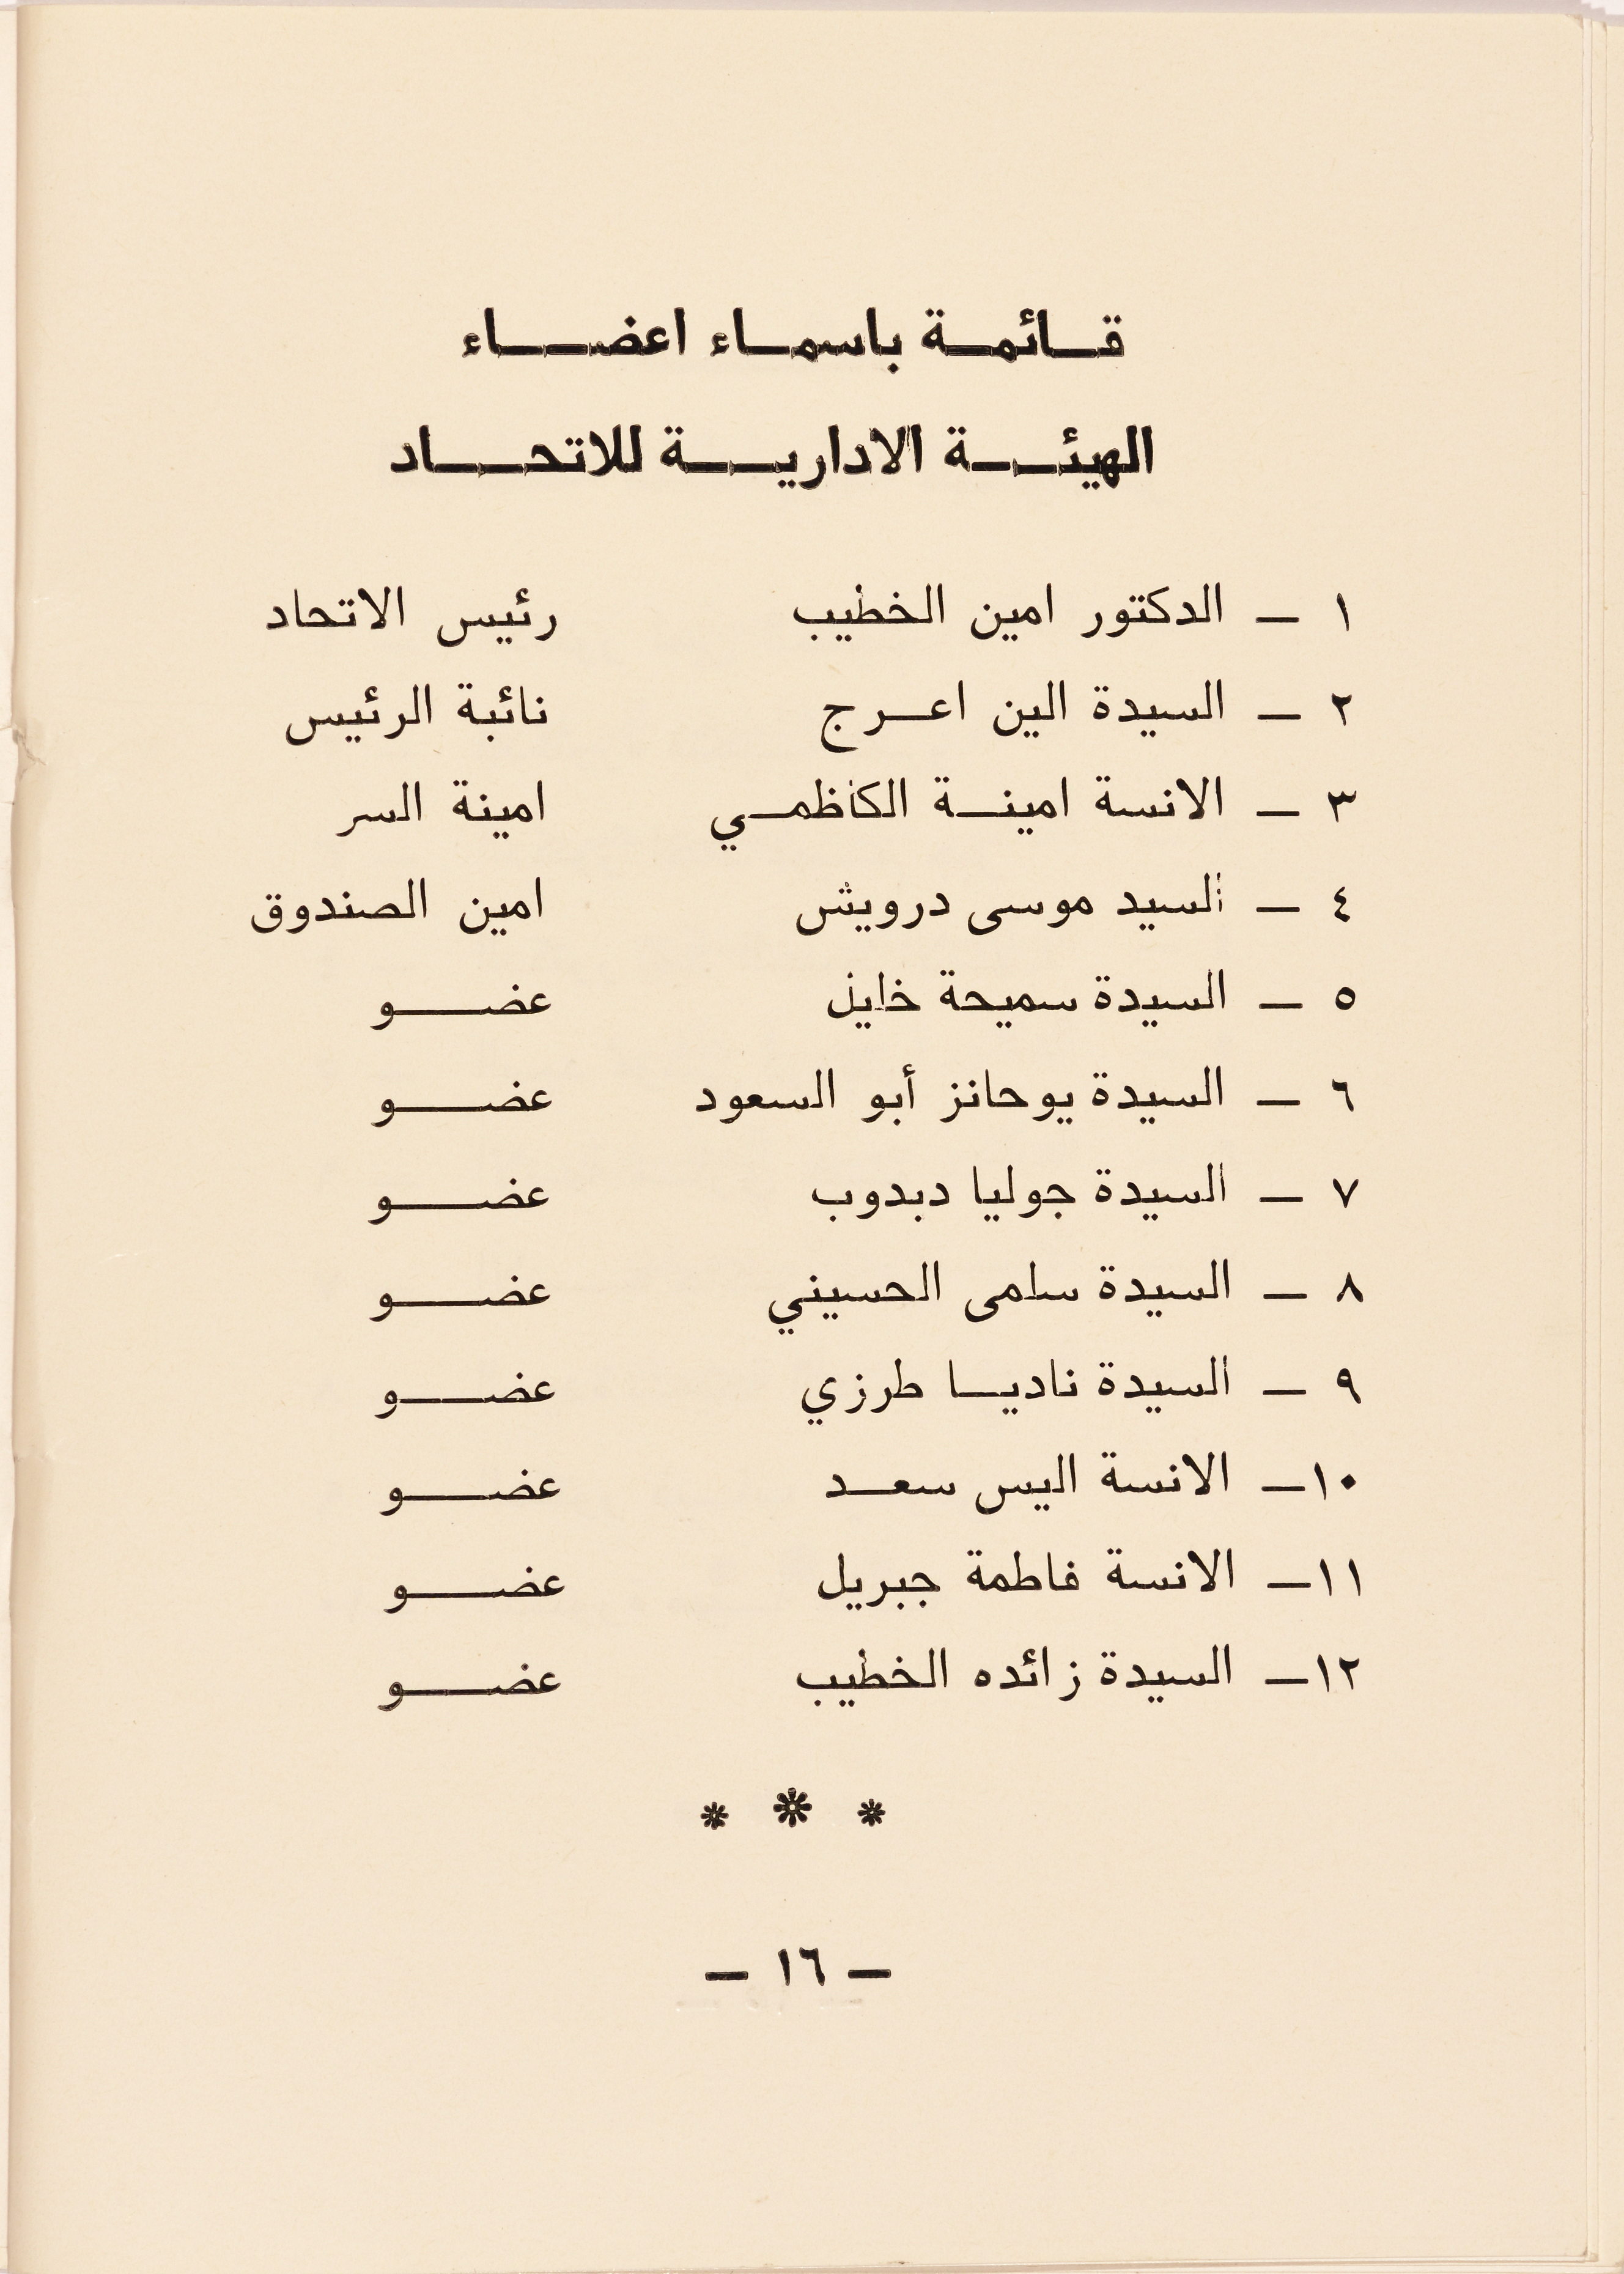 قائمة باسماء اعضاء
الهيئة الادارية للاتحاد
١ — الدكتور امين الخطيب رئيس الاتحاد
٢ — السيدة الين اعرج نائبة الرئيس
٣ — الانسة امينة الكاظمي امينة السر
٤ — السيد موسى درويش امين الصندوق
٥ — السيدة سميحة خليل عضو
٦ — السيدة يوحانز أبو السعود عضو
٧ — السيدة جوليا دبدوب عضو
٨ — السيدة سامى الحسيني عضو
٩ — السيدة ناديا طرزي عضو
١٠— الانسة اليس سعد عضو
١١— الانسة فاطمة جبريل عضو
١٢— السيدة زائده الخطيب عضو
* * *
— ١٦ —